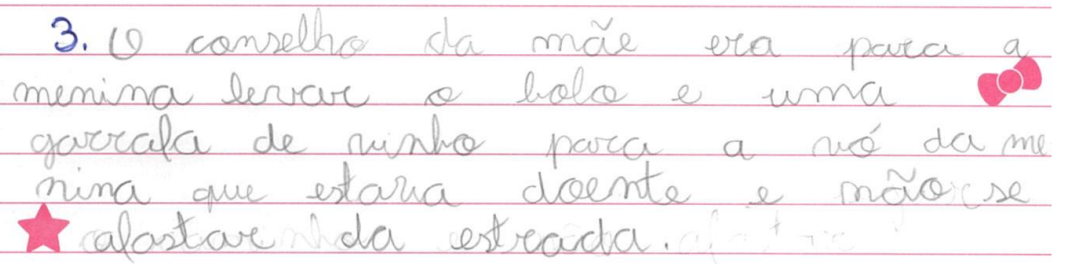 3. O conselho da mãe era para a
menina levar o bolo e uma
garrafa de vinho para a vó da me
nina que estava doente e não se
afastar da estrada.